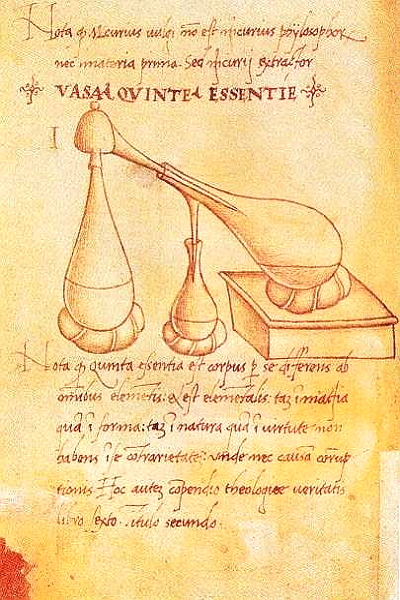 Nota q Mercurius vulgi nõ est mercurius phylosophor
nec materia prima. Sed mercurij extractor
VASA QVINTE ESSENTIE
I
Nota q Quinta essentia est corpus p se differens ab
omnibus elementis: et est elemetalis: taz ĩ materia
quã ĩ forma: taz ĩ natura quã ĩ virtute non
habens ĩ se contrarietate: unde nec causa corrup
tionis. Hoc autez copendio theologice veritatis
libro sexto. titulo secundo.